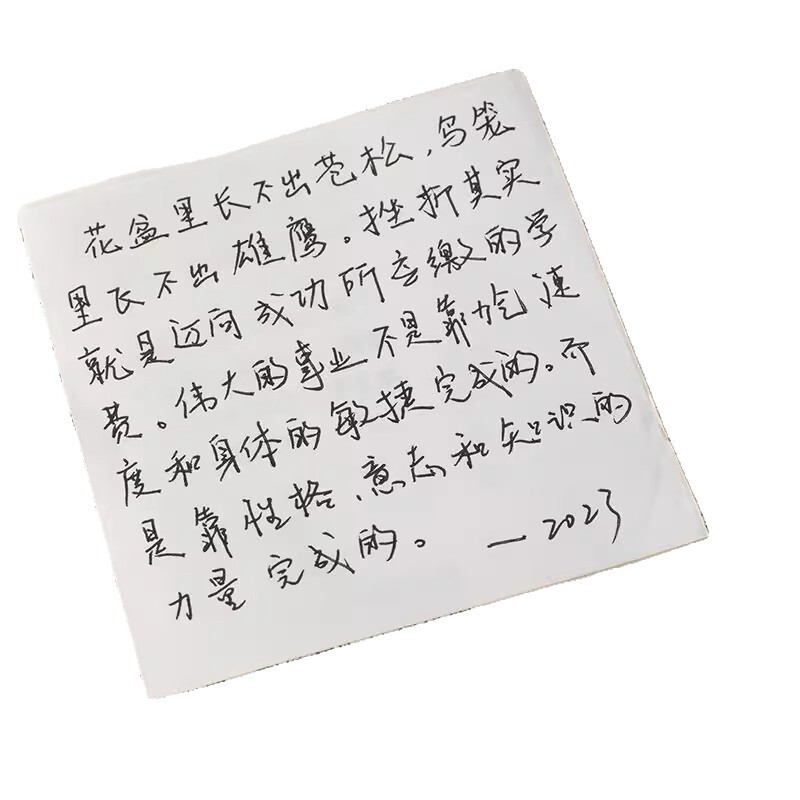 花盆里长不出苍松，鸟笼
里长不出雄鹰。挫折其实
就是迈向成功所应缴的学
费。伟大的事业不是靠力气速
度和身体的敏捷完成的。而
是靠性格、意志和知识的
力量完成的。 —2023